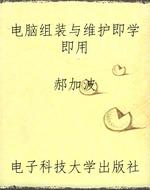 电脑组装与维护即学
即用
郝加波
电子科技大学出版社